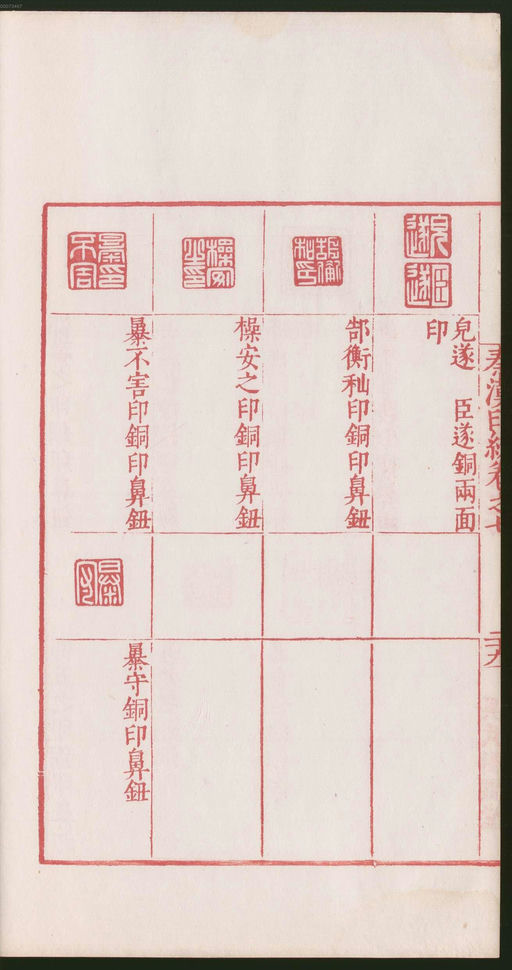 00073467
秦漢印統卷之七
二十九
皃遂 臣遂銅兩面
印
郜衡私印銅印鼻鈕
橾安之印銅印鼻鈕
暴不害印銅印鼻鈕
暴守銅印鼻鈕